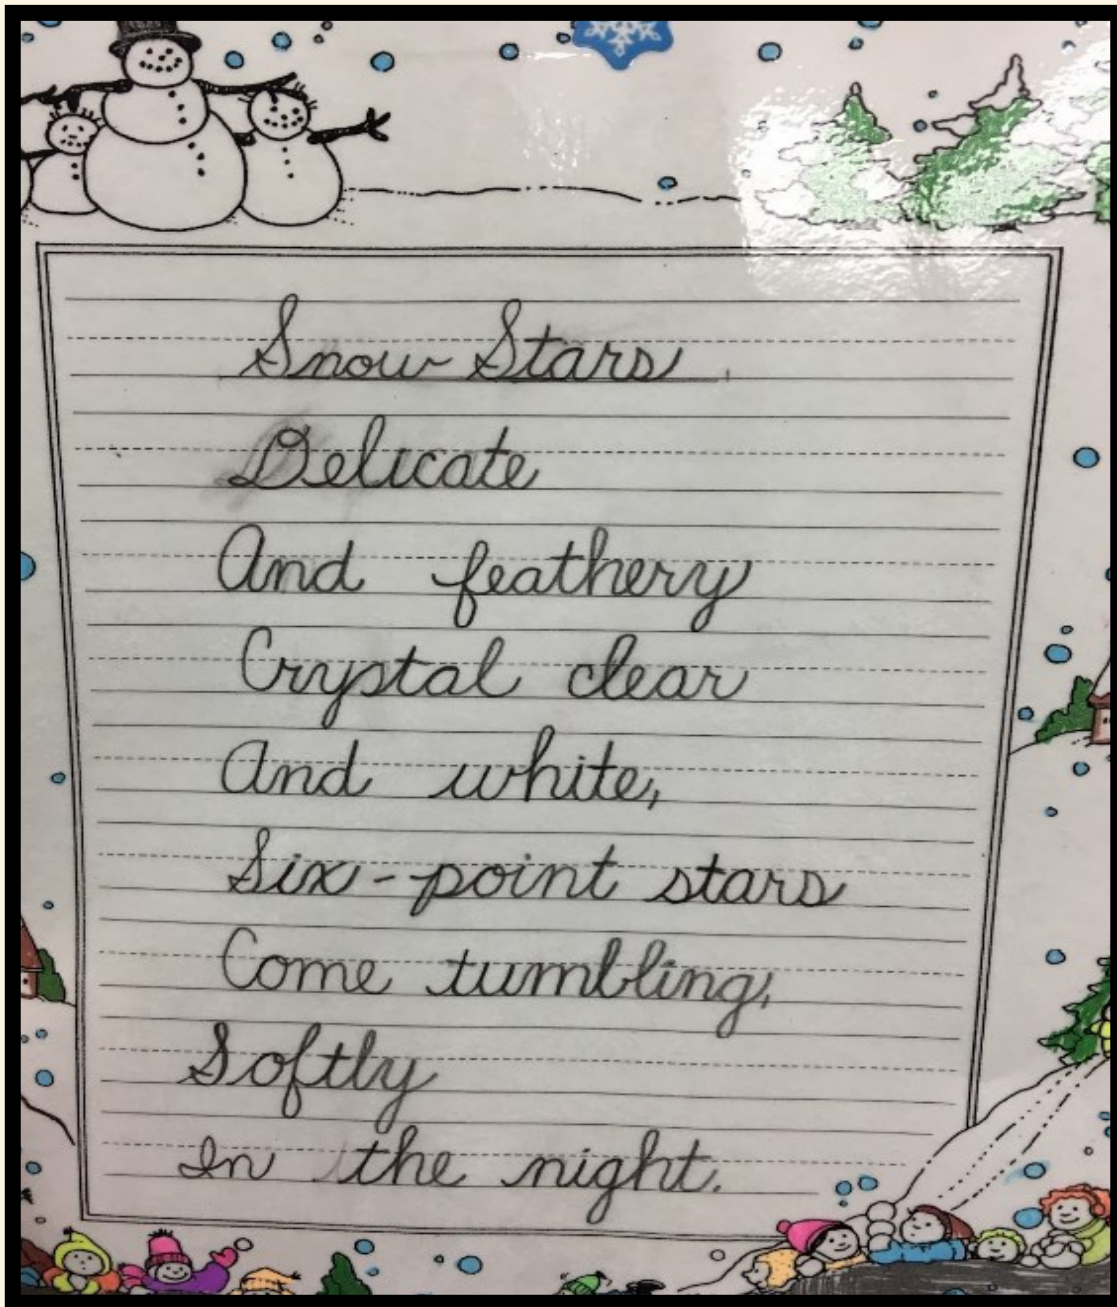 Snow Stars
Delicate
And feathery
Crystal clear
And white,
Six-point stars
Come tumbling,
Softly
In the night.